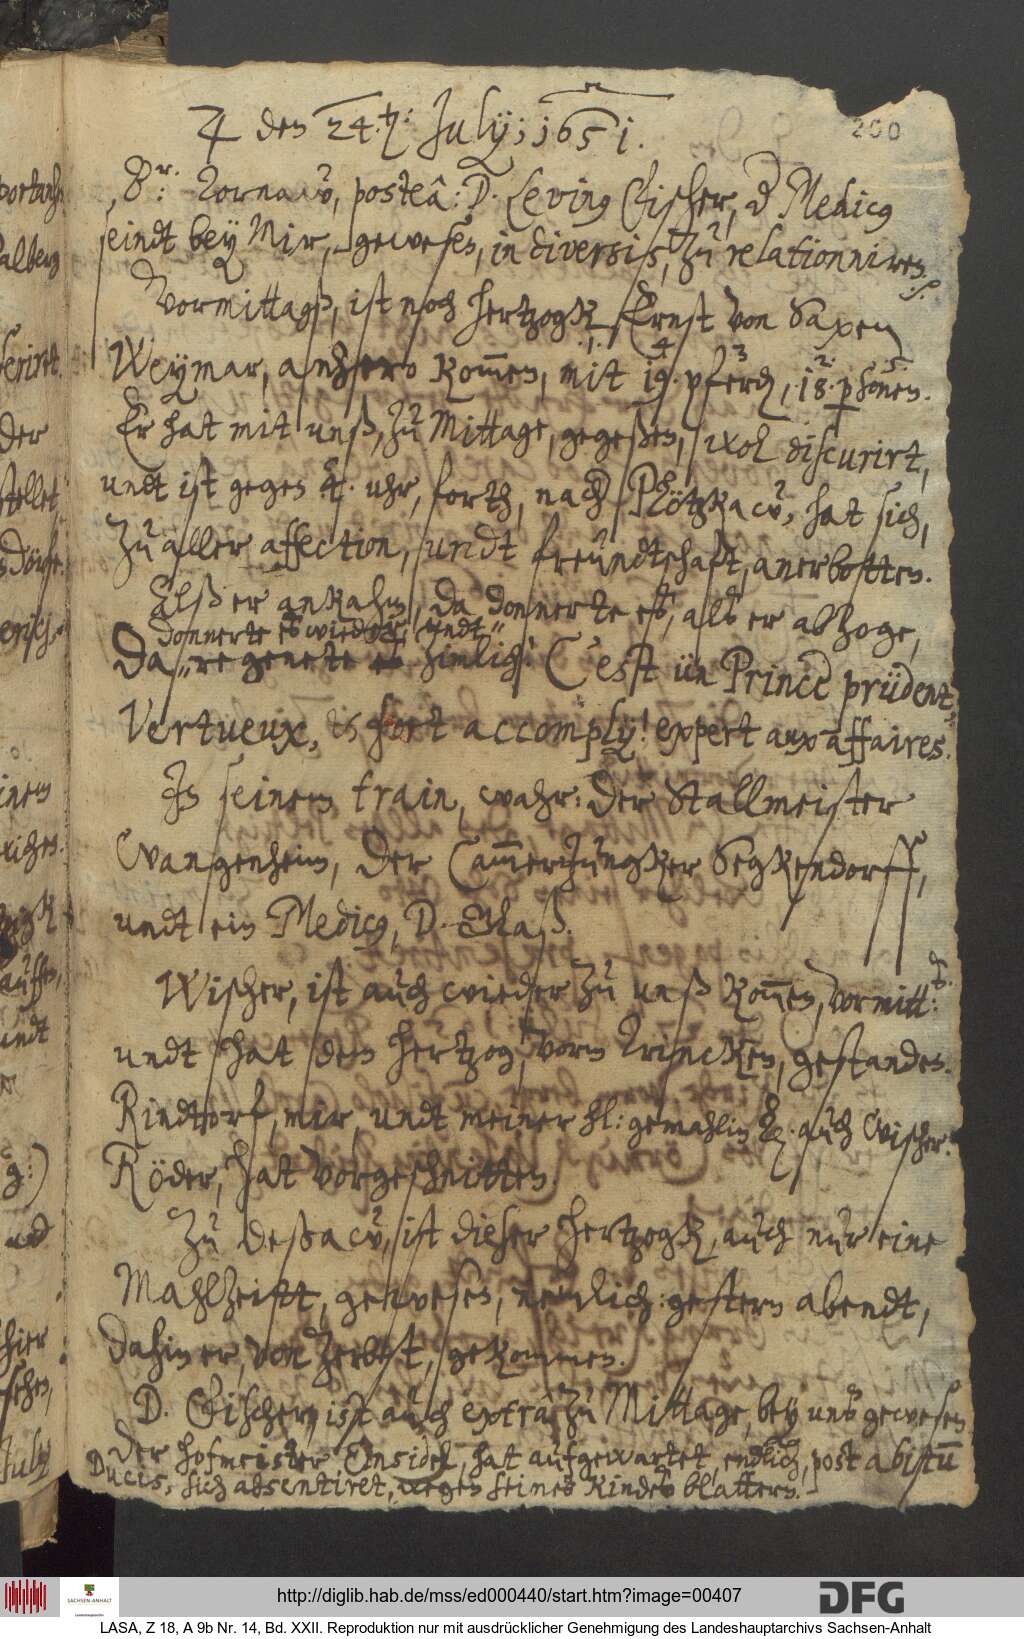 200
♃ den 24.t: July; 1651.
Hr: Tornaw, posteâ: D. Levinus Fischer, d Medicus
seindt bey Mir, gewesen, in diversis, zu relationniren.
Vormittagß, ist noch Hertzogk Ernst von Saxen
Weymar, anhero kommen, mit 19. pferd, 18. personen.
Er hat mit unß, zu Mittage, gegeßen, wol discurirt,
undt ist gegen 4. uhr, forth, nach Plötzkaw, hat sich,
zu aller affection, undt freundtschaft, anerbotten.
Alß er ankahm, da donnerte es, alß er abzoge,
donnerte es wieder, undt
Da regenete es zimlich. C'est ün Prince prüdent,
Vertueux, & fort accomply! expert aux affaires.
In seinem train, wahr: der Stallmeister
Wangenheim, der Cammerjungker Segkendorff,
undt ein Medicus, D. Glaß.
Wischer, ist auch wieder zu unß kommen, vormitt:
undt hat den Hertzog, vorm Trincken, gestanden.
Rindtorf, mir, undt meiner hl: gemahlin &. auch Wischer.
Röder, hat vorgeschnitten.
Zu Deßaw, ist dieser Hertzogk, auch nur eine
Mahlzeitt, gewesen, nemlich: gestern abendt,
dahin er, von Zerbst, gekommen.
D. Fischer, ist auch extra zu Mittage, bey uns gewesen
Der hofmeister Einsidel, hat aufgewartet, endlich, post abitum
Ducis, sich absentiret, wegen seines Kindes blattern.
http://diglib.hab.de/mss/ed000440/start.htm?image=00407
SACHSEN-ANHALT
DFG
LASA, Z 18, A 9b Nr. 14, Bd. XXII. Reproduktion nur mit ausdrücklicher Genehmigung des Landeshauptarchivs Sachsen-Anhalt